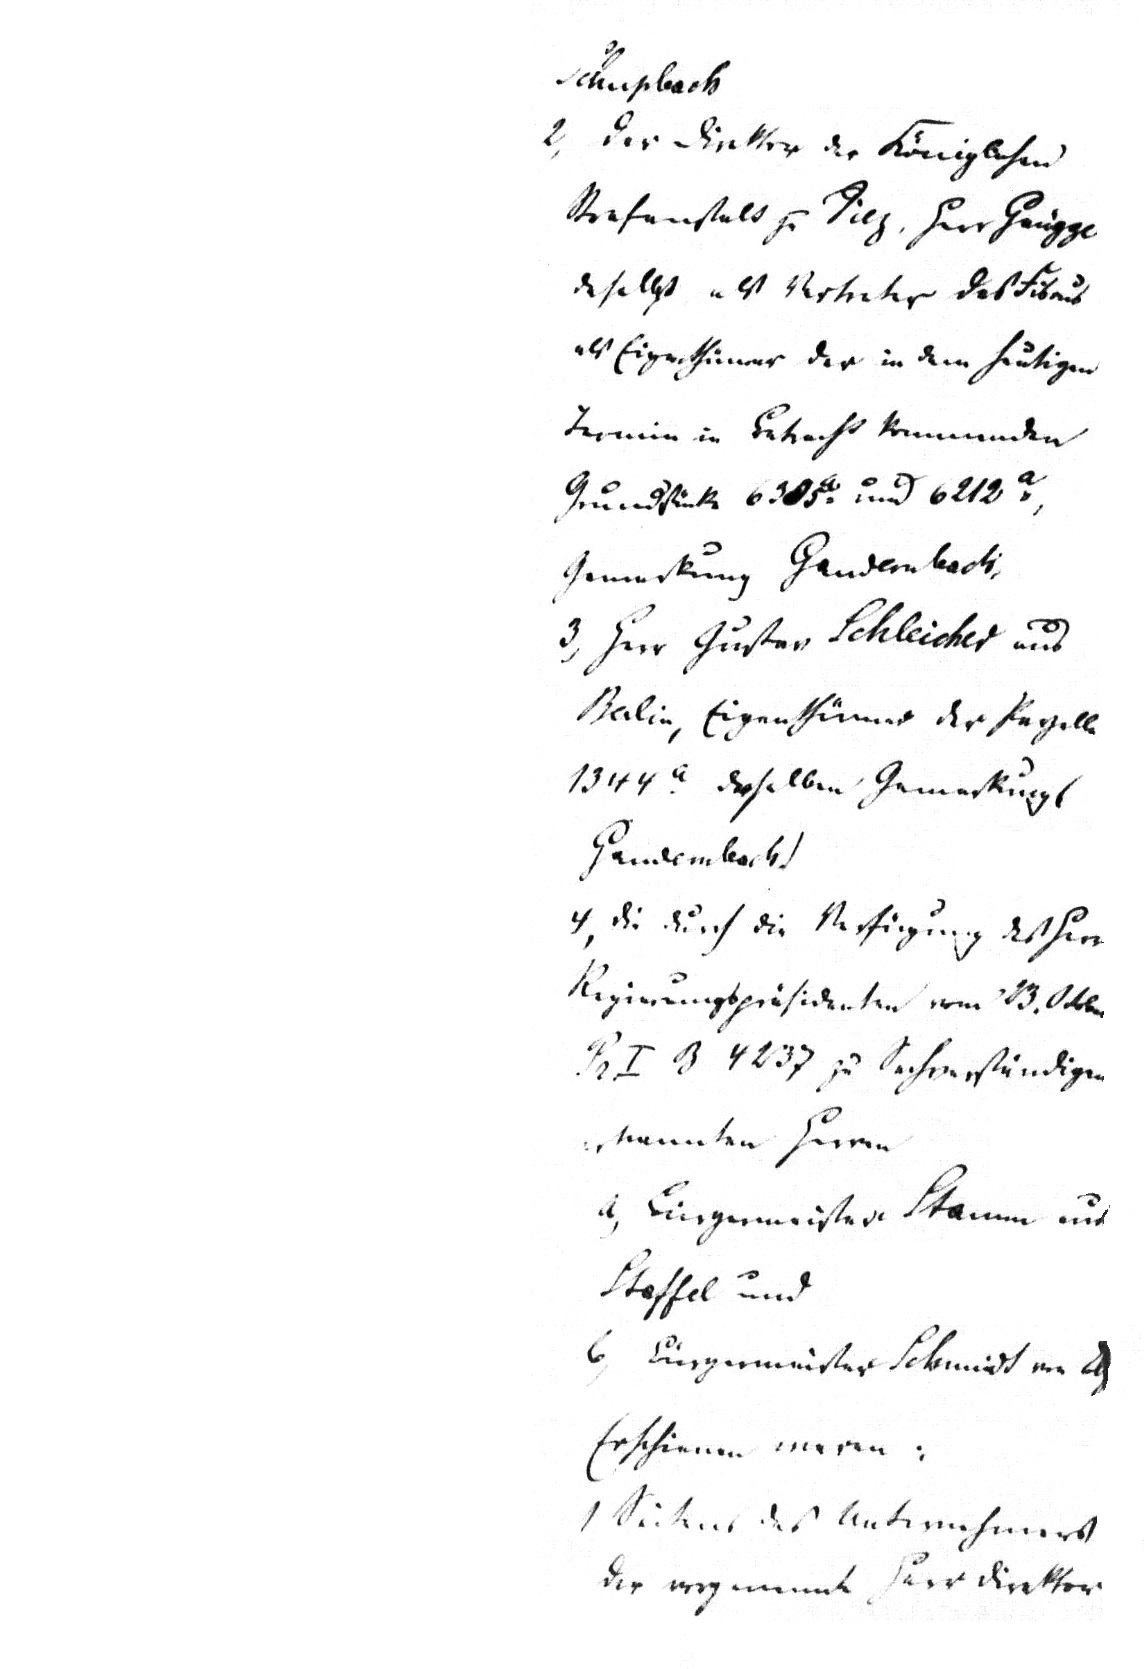 Schupbach
2, der Direktor der Königlichen
Strafanstalt zu Diez, Herr Gaügge
daselbst als Vertreter des Fiskus
als Eigenthümer der in dem heutigen
Termin in Betracht kommenden
Grundstücke 6305a. und 6212a.,
Gemarkung Gaudernbach,
3, Herr Gustav Schleicher aus
Berlin, Eigenthümer der Parzelle
1344a. derselben Gemarkung (
Gaudernbach)
4, die durch die Verfügung des Herr
Regierungspräsidenten vom 23. Oktober
Pr I B 4237 zu Sachverständigen
ernannten Herren
a, Bürgermeister Stamm aus
Staffel und
b, Bürgermeister Schmidt von
Erschienen waren:
1 Seitens des Unternehmers
der vorgenannte Herr Direktor